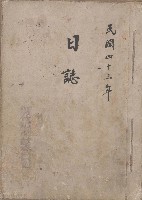 民國四十三年
日誌